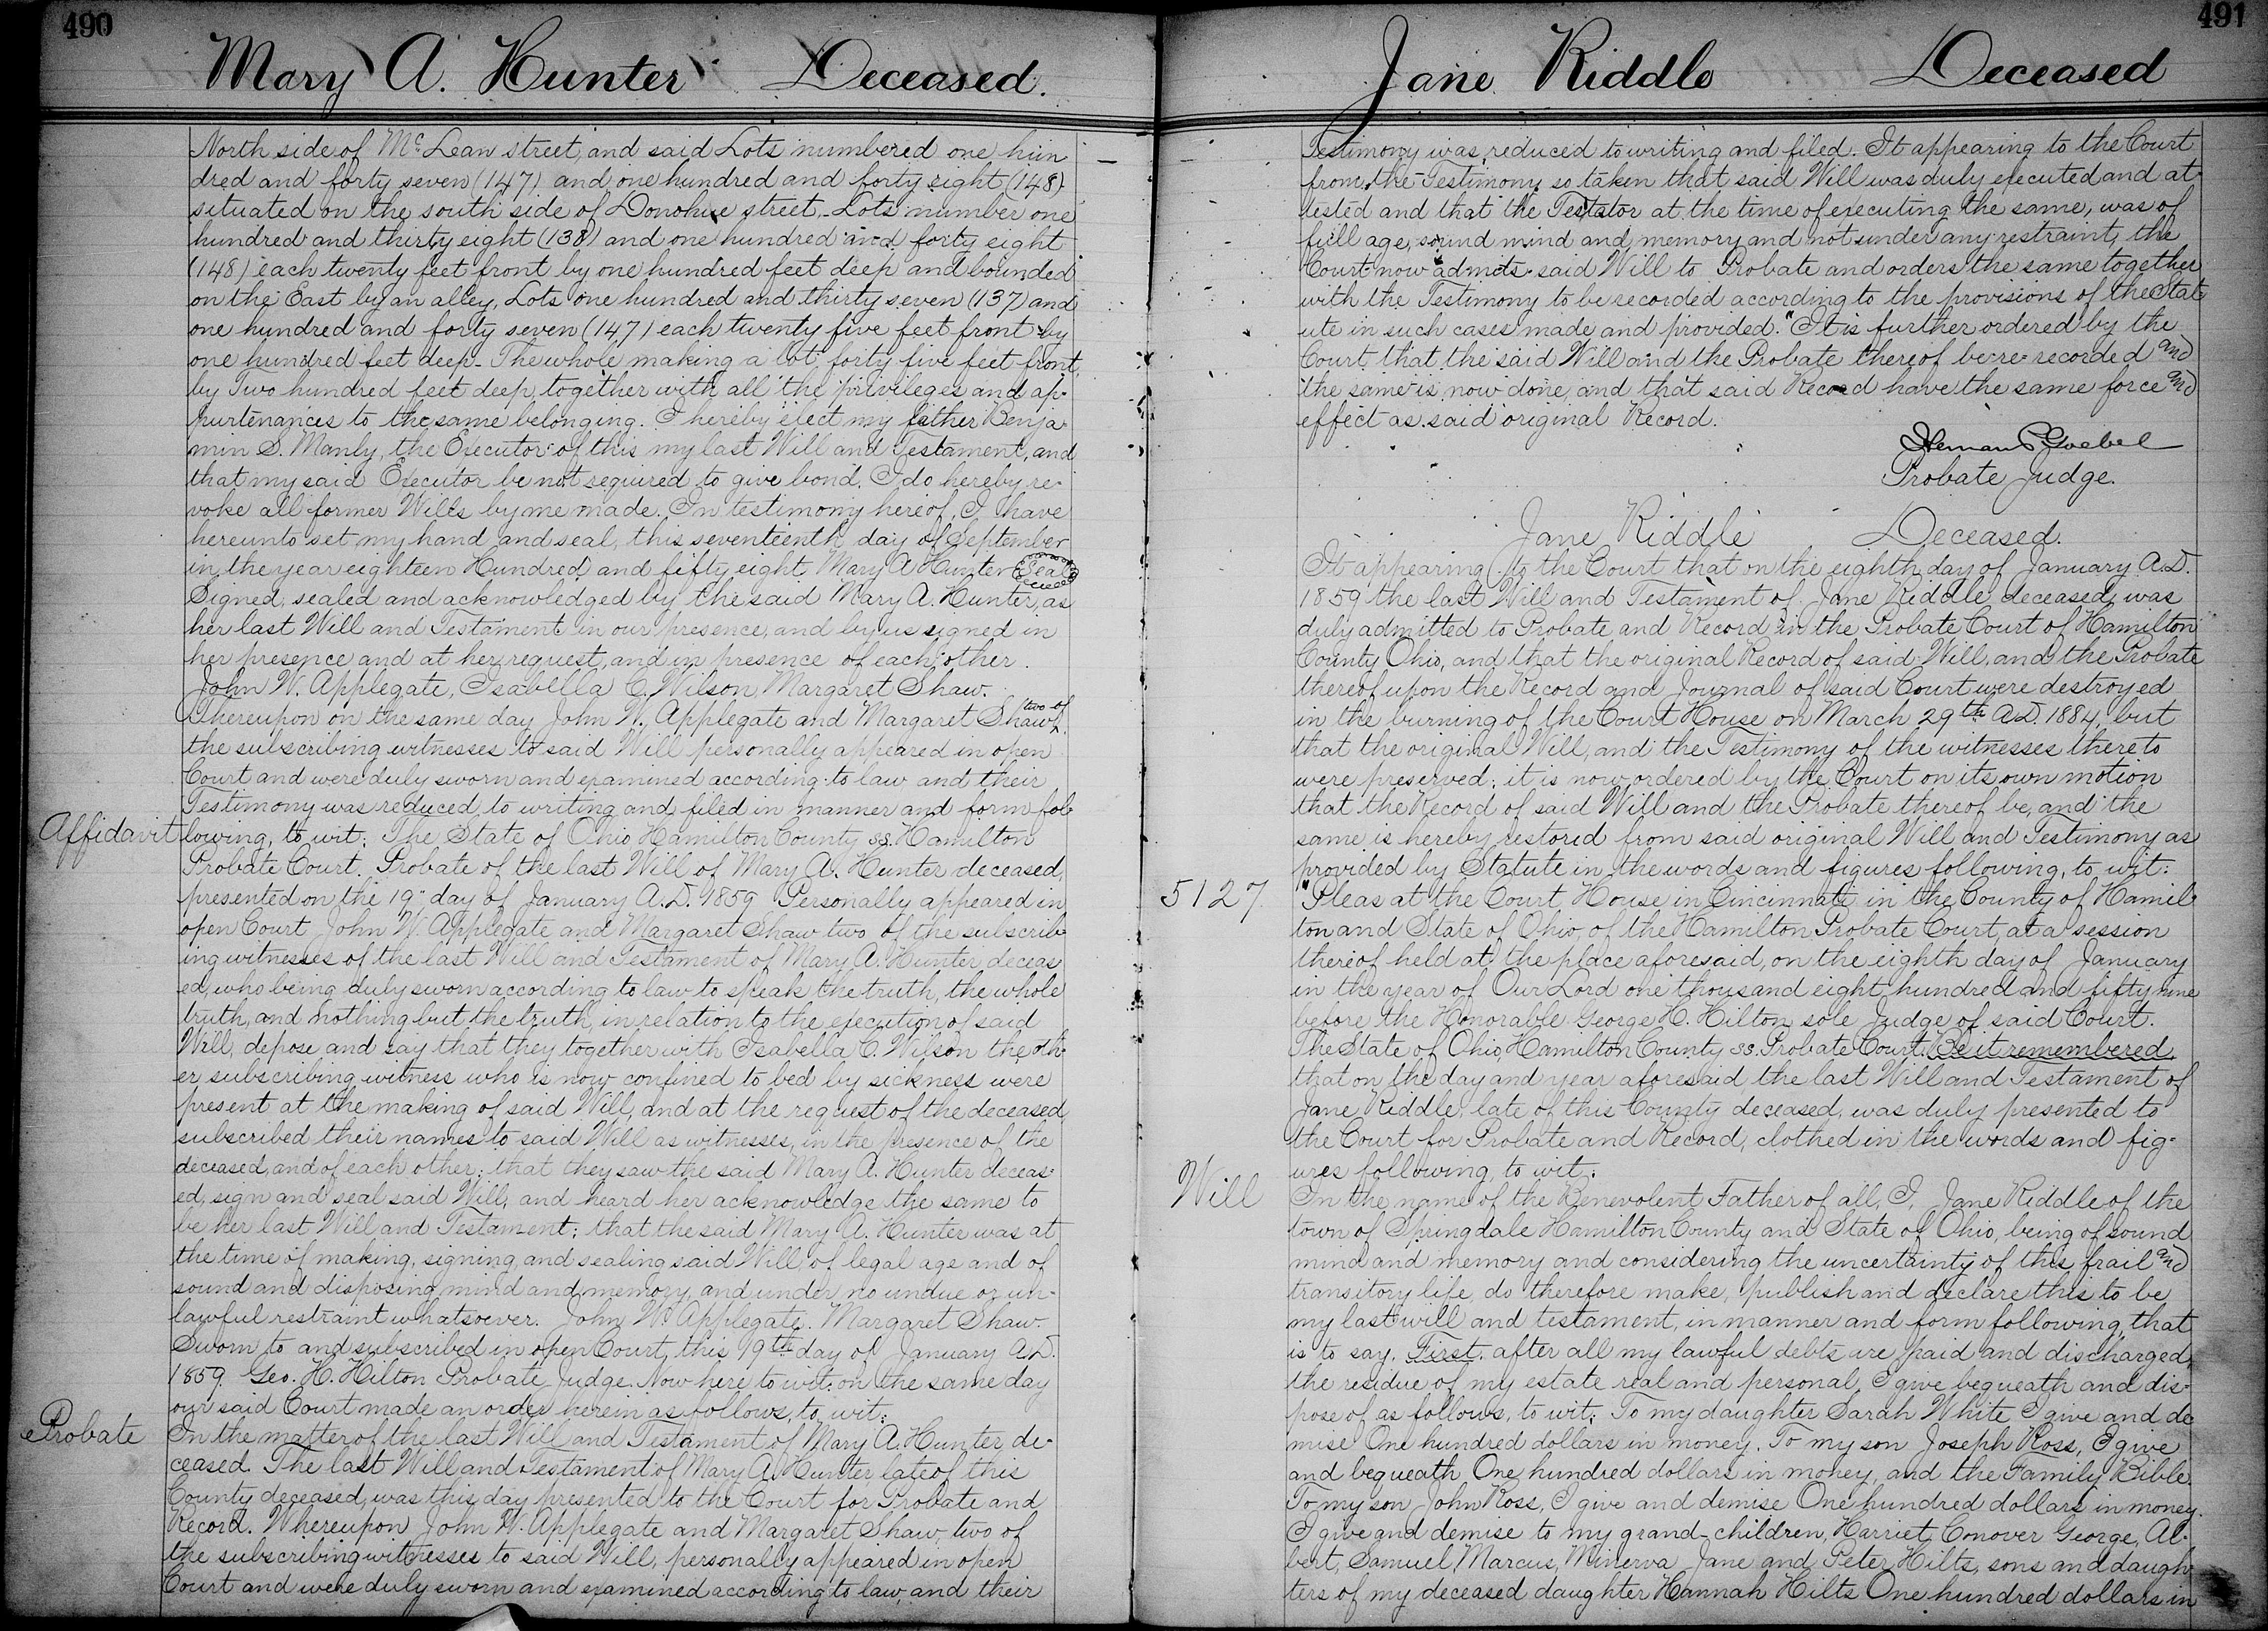 490
Mary A. Hunter Deceased.
North side of Mc Lean street, and said Lots numbered one hun
dred and forty seven (147) and one hundred and forty eight (148)
situated on the south side of Donohue street, Lots number one
hundred and thirty eight (138) and one hundred and forty eight
(148) each twenty feet front by one hundred feet deep and bounded
on the East by an alley, Lots one hundred and thirty seven (137) and
one hundred and forty seven (147) each twenty five feet front by
one hundred feet deep - The whole making a lot forty five feet front
by Two hundred feet deep, together with all the privileges and ap-
purtenances to the same belonging. I hereby elect my father Benja-
min S. Manly, the Executor of this my last Will and Testament, and
that my said Executor be not required to give bond. I do hereby re-
voke all former Wills by me made. In testimony hereof, I have
hereunto set my hand and seal, this seventeenth day of September
in the year eighteen Hundred and fifty eight. Mary A Hunter Seal
Signed, sealed and acknowledged by the said Mary A. Hunter, as
her last Will and Testament in our presence, and by us signed in
her presence and at her request, and in presence of each other.
John W. Applegate, Isabella C. Wilson, Margaret Shaw.
Thereupon on the same day John W. Applegate and Margaret Shaw two of
the subscribing witnesses to said Will personally appeared in open
Court and were duly sworn and examined according to law and their
Testimony was reduced to writing and filed in manner and form fol-
Affidavit lowing, to wit: The State of Ohio Hamilton County ss. Hamilton
Probate Court. Probate of the last Will of Mary A. Hunter deceased,
presented on the 19" day of January A.D. 1859 Personally appeared in
open Court John W. Applegate and Margaret Shaw two of the subscrib-
ing witnesses of the last Will and Testament of Mary A. Hunter deceas
ed, who being duly sworn according to law to speak the truth, the whole
truth, and nothing but the truth, in relation to the execution of said
Will, depose and say that they together with Isabella C. Wilson the oth-
er subscribing witness who is now confined to bed by sickness were
present at the making of said Will, and at the request of the deceased,
subscribed their names to said Will as witnesses, in the presence of the
deceased, and of each other; that they saw the said Mary A. Hunter deceas-
ed, sign and seal said Will, and heard her acknowledge the same to
be her last Will and Testament; that the said Mary A. Hunter was at
the time of making, signing, and sealing said Will, of legal age and of
sound and disposing mind and memory, and under no undue or un-
lawful restraint whatsoever. John W. Applegate. Margaret Shaw.
Sworn to and subscribed in open Court, this 19th day of January A.D.
1859. Geo. H. Hilton Probate Judge. Now here to wit: on the same day
our said Court made an order herein as follows, to wit:
Probate In the matter of the last Will and Testament of Mary A. Hunter de-
ceased. The last Will and Testament of Mary A. Hunter late of this
County deceased, was this day presented to the Court for Probate and
Record. Whereupon John W. Applegate and Margaret Shaw, two of
the subscribing witnesses to said Will, personally appeared in open
Court and were duly sworn and examined according to law, and their
491
Jane Riddle Deceased
Testimony was reduced to writing and filed. It appearing to the Court
from the Testimony so taken that said Will was duly executed and at-
tested and that the Testator at the time of executing the same, was of
full age, sound mind and memory and not under any restraint, the
Court now admits said Will to Probate and orders the same together
with the Testimony to be recorded according to the provisions of the Stat
ute in such cases made and provided." It is further ordered by the
Court that the said Will and the Probate thereof be re-recorded and
the same is now done, and that said Record have the same force and
effect as said original Record.
Herman P. Goebel
Probate Judge.
Jane Riddle Deceased.
It appearing to the Court that on the eighth day of January A.D.
1859 the last Will and Testament of Jane Riddle deceased, was
duly admitted to Probate and Record in the Probate Court of Hamilton
County Ohio, and that the original Record of said Will, and the Probate
thereof upon the Record and Journal of said Court were destroyed
in the burning of the Court House on March 29th A.D. 1884, but
that the original Will, and the Testimony of the witnesses thereto
were preserved; it is now ordered by the Court on its own motion
that the Record of said Will and the Probate thereof be, and the
same is hereby restored from said original Will and Testimony as
provided by Statute in the words and figures following, to wit:
5127 "Pleas at the Court House in Cincinnati in the County of Hamil-
ton and State of Ohio, of the Hamilton Probate Court, at a session
thereof held at the place aforesaid, on the eighth day of January
in the year of Our Lord one thousand eight hundred and fifty nine
before the Honorable George H. Hilton sole Judge of said Court.
The State of Ohio Hamilton County ss. Probate Court. Be it remembered,
that on the day and year aforesaid the last Will and Testament of
Jane Riddle, late of this County deceased, was duly presented to
the Court for Probate and Record, clothed in the words and fig-
ures following, to wit:
Will In the name of the Benevolent Father of all, I, Jane Riddle of the
town of Springdale Hamilton County and State of Ohio, being of sound
mind and memory and considering the uncertainty of this frail and
transitory life, do therefore make, publish and declare this to be
my last will and testament, in manner and form following, that
is to say. First. after all my lawful debts are paid and discharged,
the residue of my estate real and personal, I give bequeath and dis-
pose of as follows, to wit: To my daughter Sarah White I give and de
mise One hundred dollars in money. To my son Joseph Ross, I give
and bequeath One hundred dollars in money, and the Family Bible.
To my son John Ross, I give and demise One hundred dollars in money.
I give and demise to my grand-children, Harriet, Conover George, Al-
bert, Samuel, Marcus, Minerva Jane and Peter Hilts, sons and daugh
ters of my deceased daughter Hannah Hilts One hundred dollars in